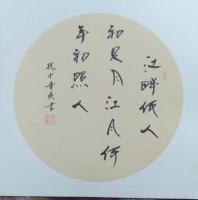 江畔何人
初见月江月何
年初照人